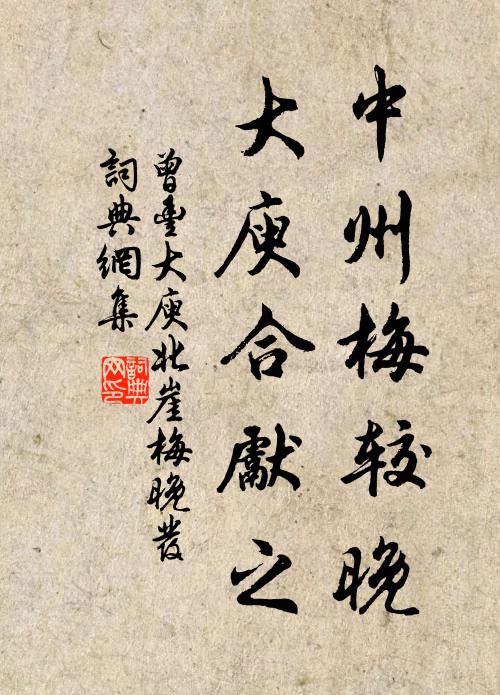 中州梅较晚
大庾合獻之
曾豐大庾北崖梅晚發
詞典網集
詞典网印